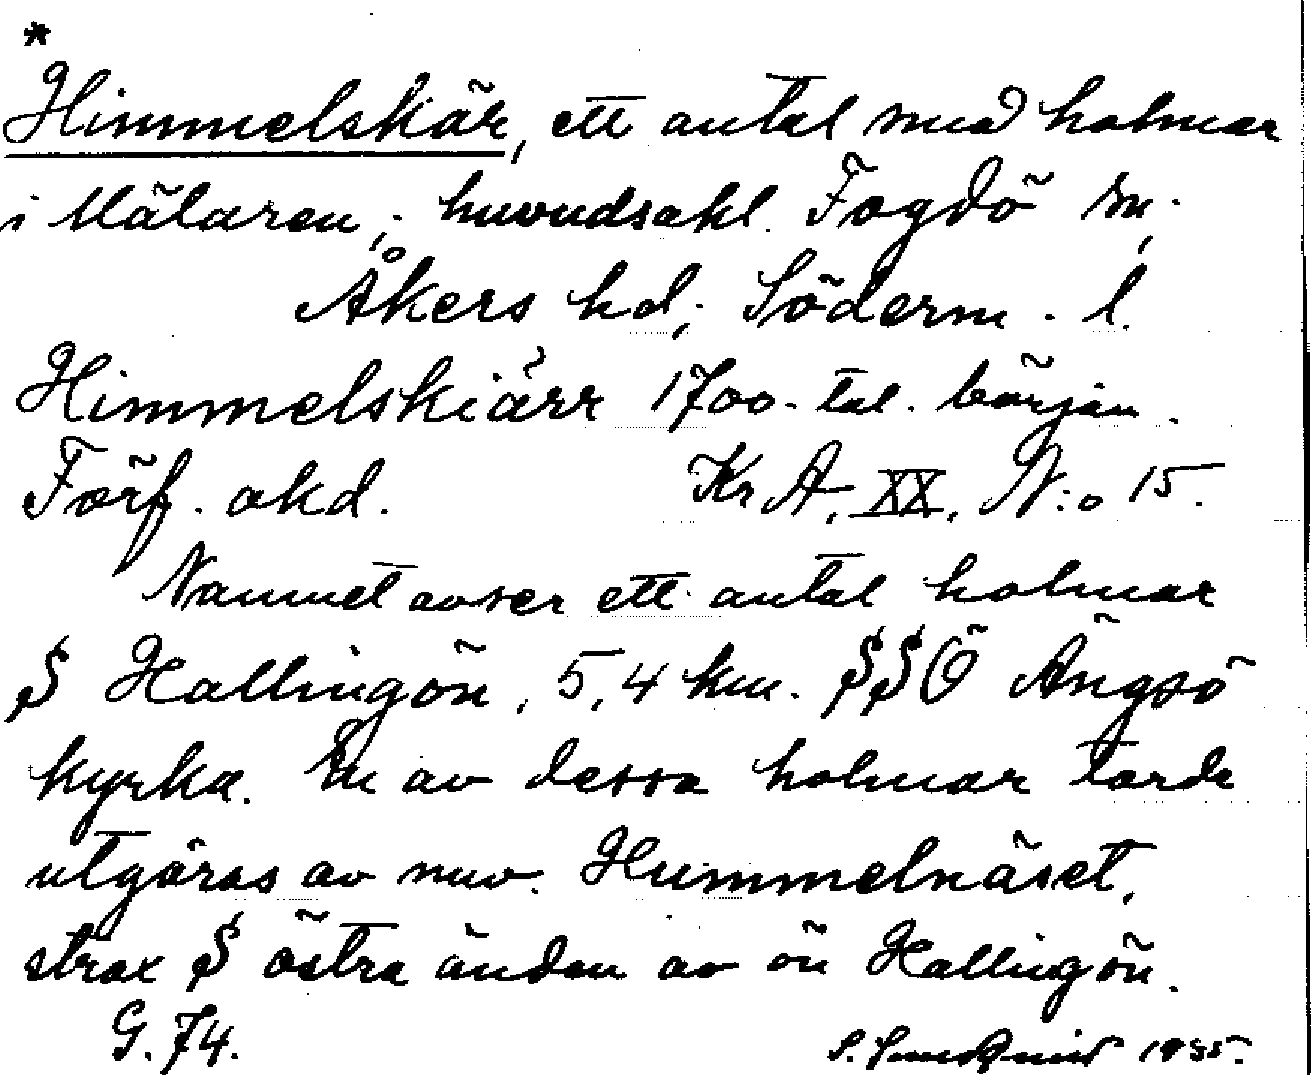 *
Himmelskär, ett antal små holmar
i Mälaren; huvudsakl. Fogdö sn,
Åkers hd; Söderm. l.
Himmelskiärr 1700-tal. början.
Förf. okd. Kr A, XX, N:o 15.
Namnet avser ett antal holmar
S Hallingön, 5,4 km. SSÖ Ängsö
kyrka. En av dessa holmar torde
utgöras av nuv. Hummelnäset,
strax S östra änden av ön Hallingön.
G. 74. S. 1955.